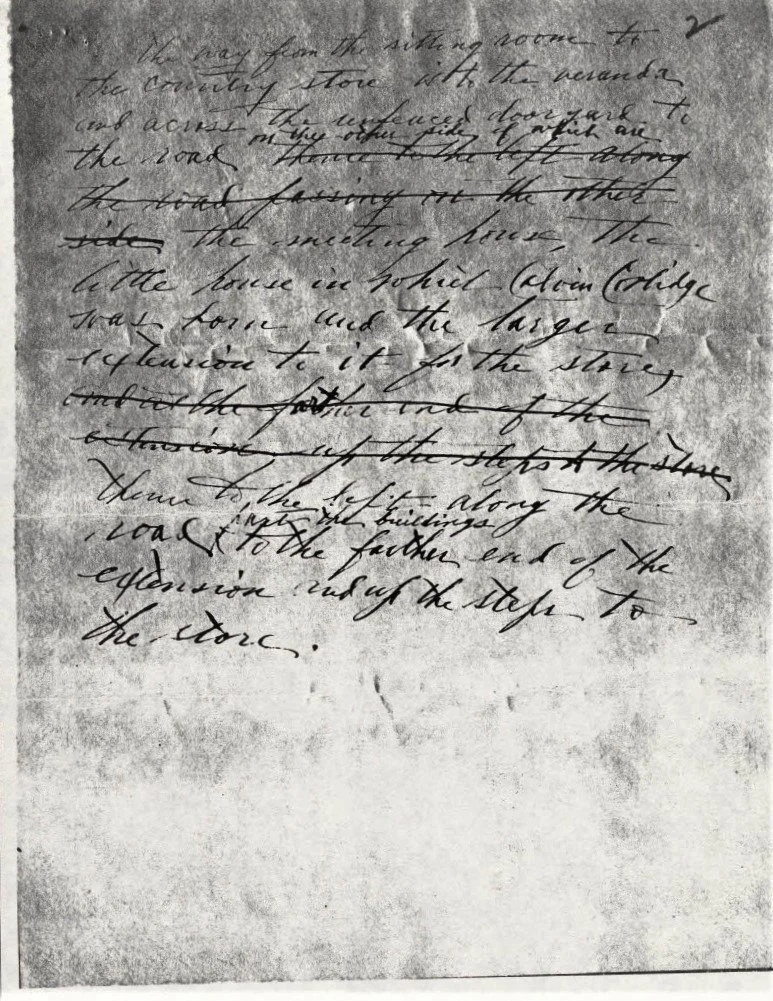 2
The way from the sitting room to
the country store is to the veranda
and across the unfenced dooryard to
on the other side of which are
the road thence to the left along
the road passing on the other
side the meeting house, the
little house in which Calvin Coolidge
was born and the larger
extension to it for the store,
and at the farther end of the
extension up the steps to the store
thence to the left along the
past the buildings
road to the farther end of the
extension and up the steps to
the store.